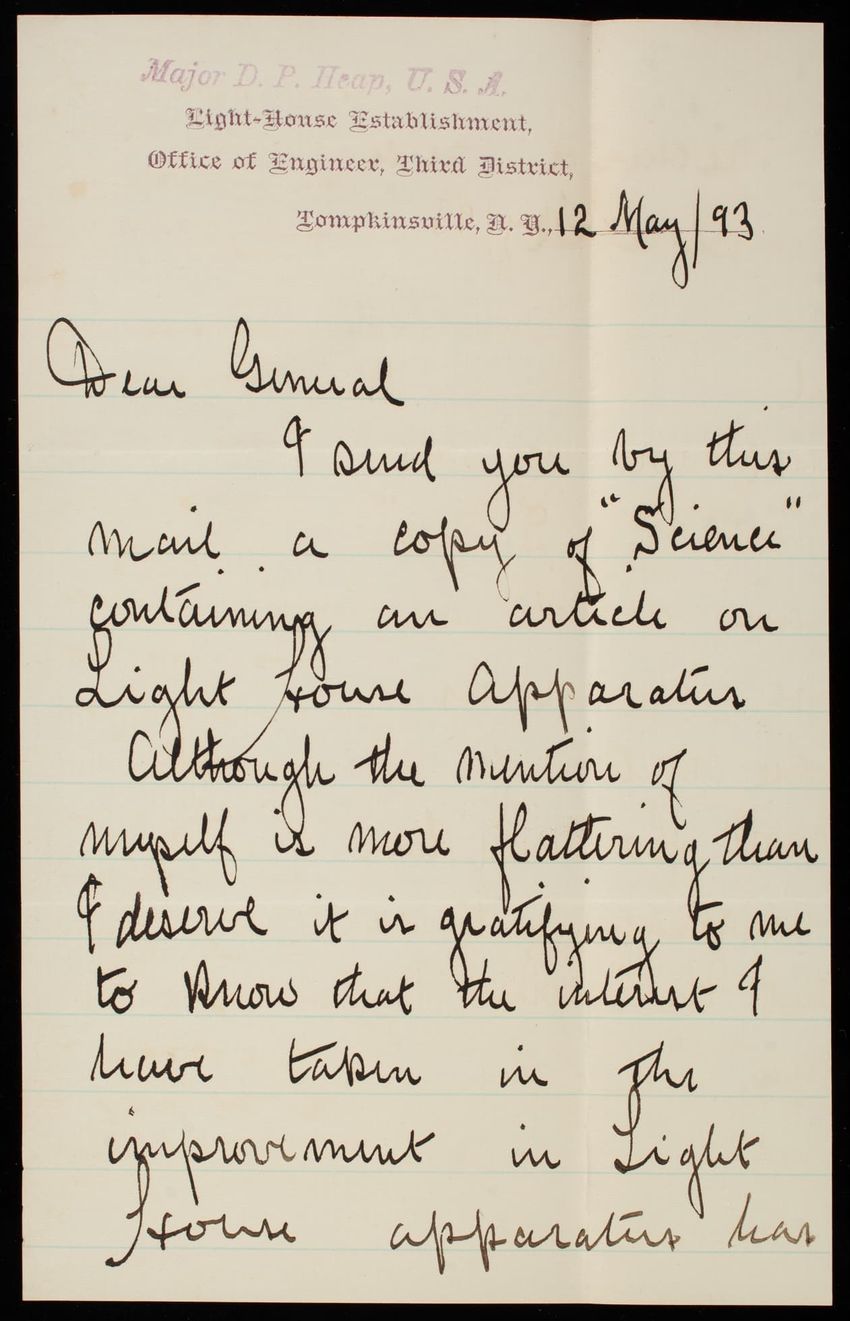 Major D. P. Heap, U. S. A.
Light-House Establishment,
Office of Engineer, Third District,
Tompkinsville, N. Y., 12 May/93
Dear General
I send you by this
mail a copy of "Science"
containing an article on
Light House Apparatus
Although the mention of
myself is more flattering than
I deserve it is gratifying to me
to know that the interest I
have taken in the
improvement in Light
House apparatus has